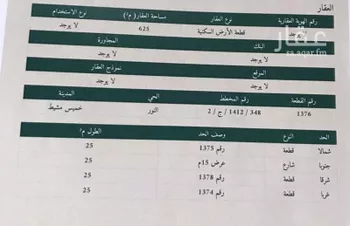 العقار
رقم الهوية العقارية نوع العقار مساحة العقار( م٢) نوع الاستخدام
لا يوجد قطعة الأرض السكنية 625 لا يوجد
البلك المجاورة
لا يوجد لا يوجد
الموقع نموذج العقار
لا يوجد لا يوجد
رقم القطعة رقم المخطط الحي المدينة
1376 348 / 1412 / ج / 2 النور خميس مشيط
الحد النوع وصف الحد الطول م/
شمالا قطعة رقم 1375 25
جنوبا شارع عرض 15م 25
شرقا قطعة رقم 1378 25
غربا قطعة رقم 1374 25
عقار
sa.aqar.fm